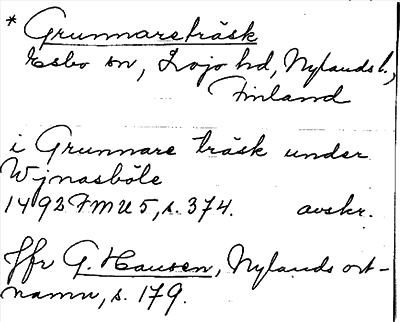 * Grunnareträsk
Esbo sn, Lojo hd, Nylands l.,
Finland
i Grunnare träsk under
Wjnasböle
1492 FMU 5, s. 374. avskr.
Jfr G. Hausen, Nylands ort-
namn, s. 179.